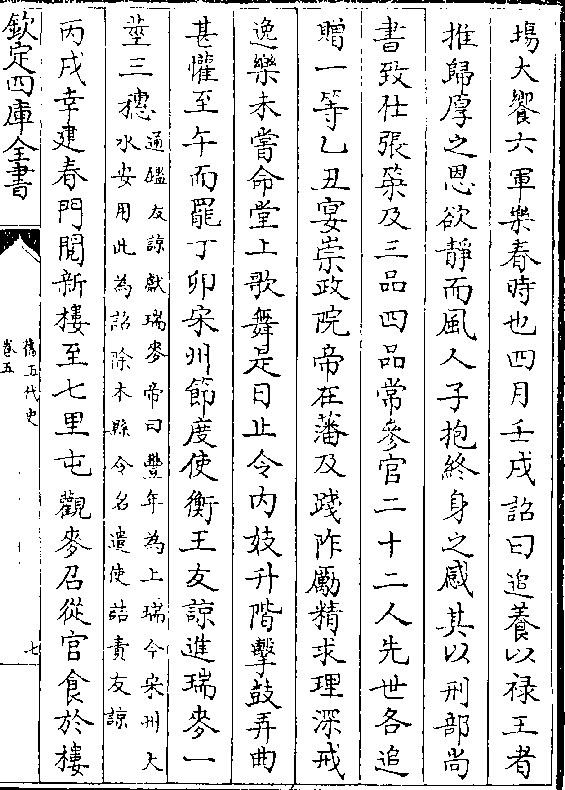 塲大饗六軍樂春時也四月壬戌詔曰追養以禄王者
推歸厚之恩欲靜而風人子抱終身之感其以刑部尚
書致仕張䇿及三品四品常參官二十二人先世各追
贈一等乙丑宴崇政院帝在藩及踐阼勵精求理深戒
逸樂未嘗命堂上歌舞是日止令内妓升階擊鼓弄曲
甚懽至午而罷丁卯宋州節度使衡王友諒進瑞麥一
莖三穗
通鑑友諒獻瑞麥帝曰豐年為上瑞今宋州大
水安用此為詔除本縣令名遣使詰責友諒
丙戌幸建春門閲新樓至七里屯觀麥召從官食於樓
欽定四庫全書
舊五代史
卷五
七